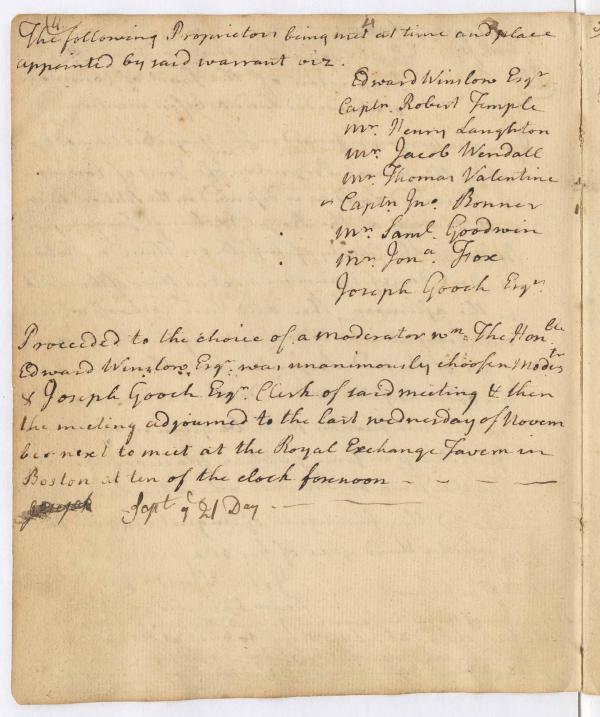 4
The following Proprietors being met at time and place
appointed by said warrant viz.
Edward Winslow Esqr.
Captn. Robert Temple
Mr. Henry Laughton
Mr. Jacob Wendall
Mr. Thomas Valentine
Captn. Jno. Bonner
Mr. Saml. Goodwin
Mr. Jona. Fox
Joseph Gooch Esqr.
Proceeded to the choice of a moderator wn. The Honble
Edward Winslow Esqr. was unanimously choosen Modr
& Joseph Gooch Esqr. Clerk of said meeting & then
the meeting adjourned to the last wednesday of Novem
ber next to meet at the Royal Exchange Tavern in
Boston at ten of the clock forenoon
Sept ye 21 Day